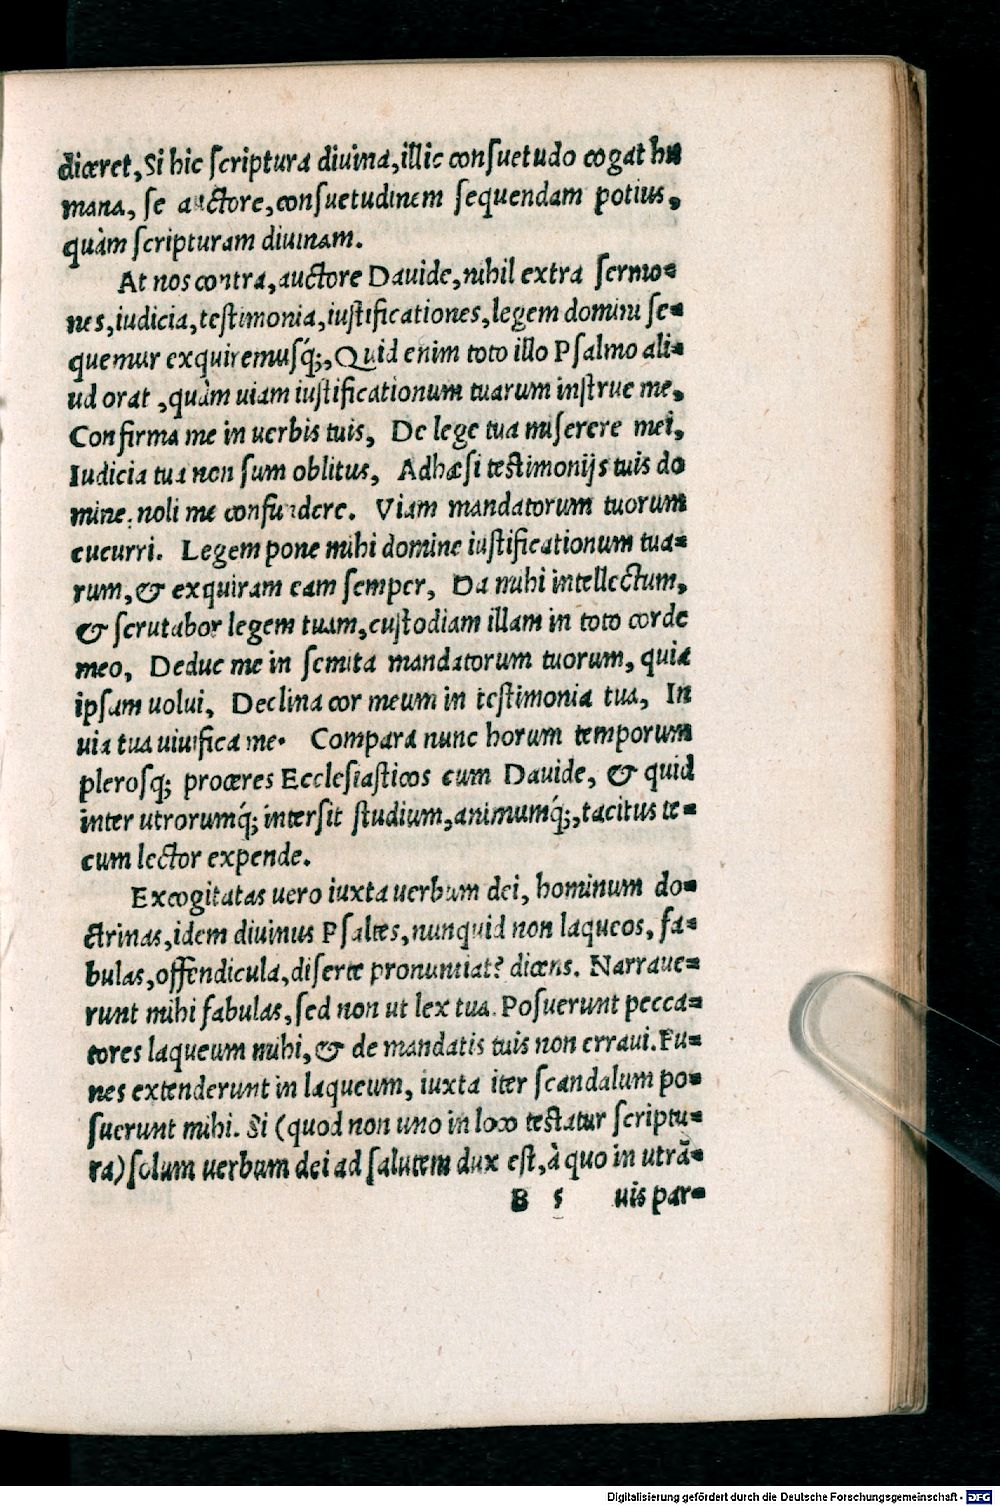 diceret, Si hic scriptura diuina, illic consuetudo cogat hu
mana, se auctore, consuetudinem sequendam potius,
quàm scripturam diuinam.
At nos contra, auctore Dauide, nihil extra sermo=
nes, iudicia, testimonia, iustificationes, legem domini se=
quemur exquiremusq́;, Quid enim toto illo Psalmo ali=
ud orat, quàm uiam iustificationum tuarum instrue me,
Confirma me in uerbis tuis, De lege tua miserere mei,
Iudicia tua non sum oblitus, Adhæsi testimonijs tuis do
mine, noli me confundere. Viam mandatorum tuorum
cucurri. Legem pone mihi domine iustificationum tua=
rum, & exquiram eam semper, Da mihi intellectum,
& scrutabor legem tuam, custodiam illam in toto corde
meo, Deduc me in semita mandatorum tuorum, quia
ipsam uolui, Declina cor meum in testimonia tua, In
uia tua uiuifica me. Compara nunc horum temporum
plerosq; proceres Ecclesiasticos cum Dauide, & quid
inter utrorumq́; intersit studium, animumq́;, tacitus te=
cum lector expende.
Excogitatas uero iuxta uerbum dei, hominum do=
ctrinas, idem diuinus Psaltes, nunquid non laqueos, fa=
bulas, offendicula, diserte pronuntiat? dicens. Narraue=
runt mihi fabulas, sed non ut lex tua. Posuerunt pecca=
tores laqueum mihi, & de mandatis tuis non erraui. Fu=
nes extenderunt in laqueum, iuxta iter scandalum po=
suerunt mihi. Si (quod non uno in loco testatur scriptu=
ra) solum uerbum dei ad salutem dux est, à quo in utrã=
B 5 uis par=
Digitalisierung gefördert durch die Deutsche Forschungsgemeinschaft - DFG